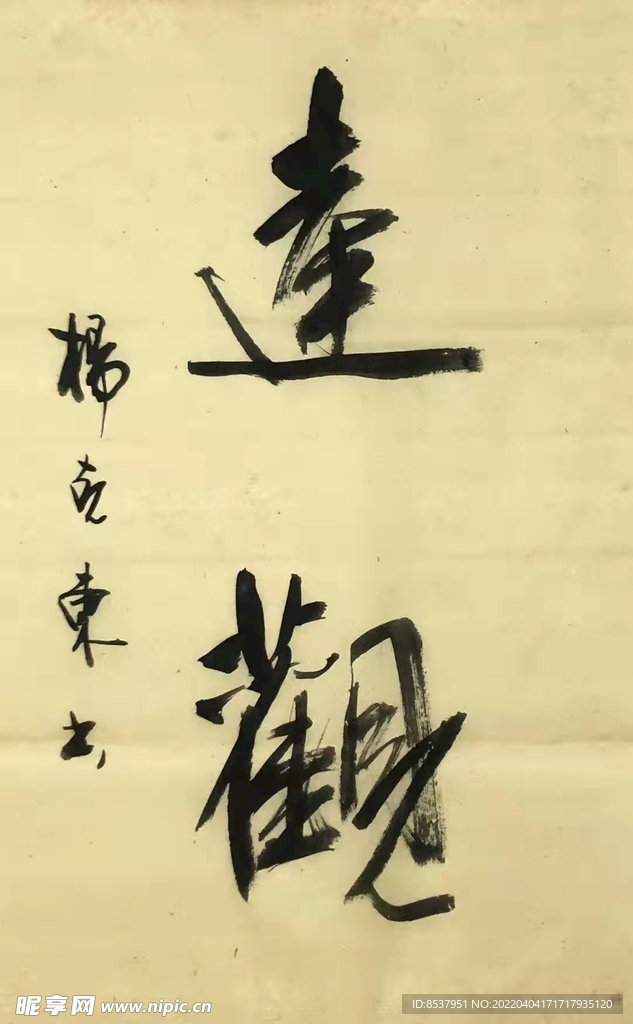 達觀
楊克東书
昵享网 www.nipic.cn
ID:8537951 NO:20220404171717935120